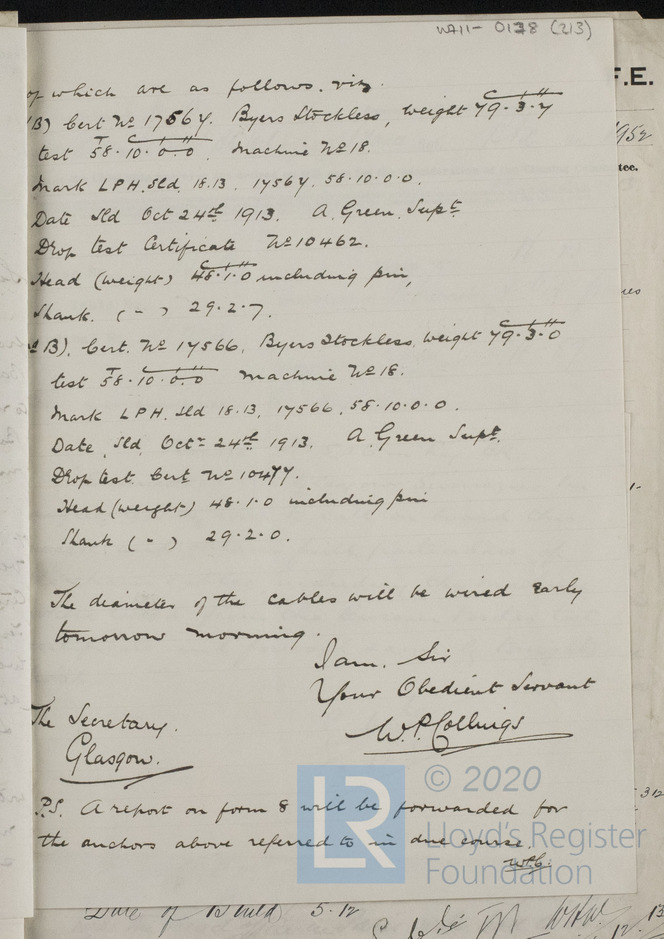 WA11- 0138 (213)
of which are as follows. viz
(B) Cert No 17567. Byers Stockless, weight 79.3.7
test 58.10.0.0. Machine No 18.
Mark L P H. Sld. 18.13. 17567. 58.10.0.0.
Date Sld Oct 24th 1913. A. Green. Supt
Drop test Certificate No 10462.
Head (weight) 48.1.0 including pin,
Shank. ( " ) 29.2.7.
B). Cert. No 17566. Byers Stockless, weight 79.3.0
test 58.10.0.0 Machine No 18.
Mark L P H. Sld 18.13. 17566. 58.10.0.0.
Date Sld. Oct 24th 1913. A. Green Supt.
Drop test. Cert No 10477.
Head (weight) 48.1.0 including pin
Shank ( " ) 29.2.0.
The diameter of the cables will be wired early
tomorrow morning.
I am. Sir
Your Obedient Servant
W.P. Collings
The Secretary.
Glasgow.
P.S. A report on form 8 will be forwarded for
the anchors above referred to in due course.
W.P.C.
F.E.
1952
tee.
LR
© 2020
Lloyd's Register
Foundation
Date of Build 5.12